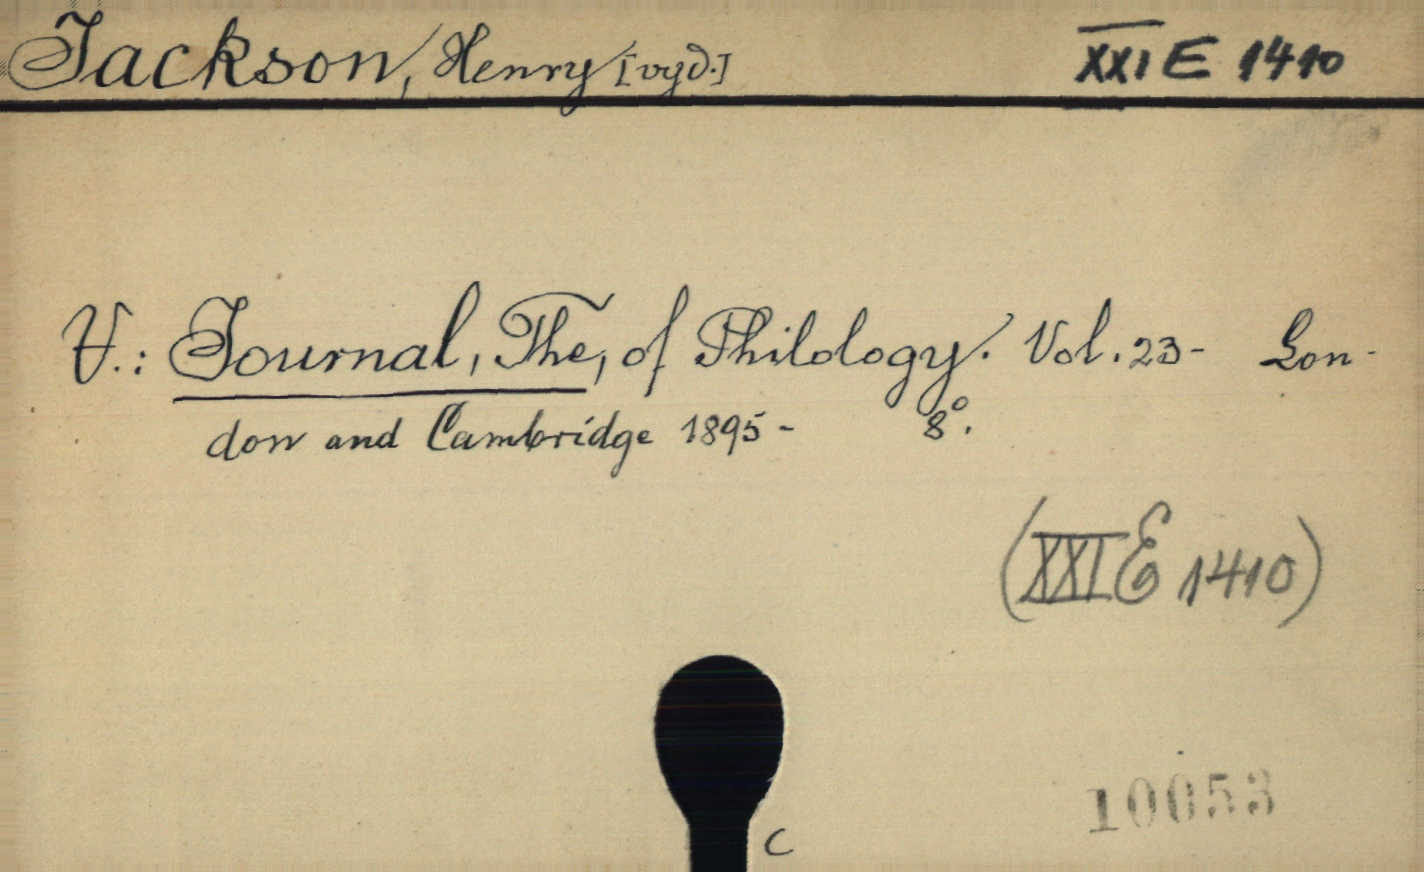 Jackson, Henry [vyd.] XXI E 1410
V.: Journal, The, of Philology. Vol. 23- Lon-
don and Cambridge 1895- 8°.
(XXI E 1410)
10053
C